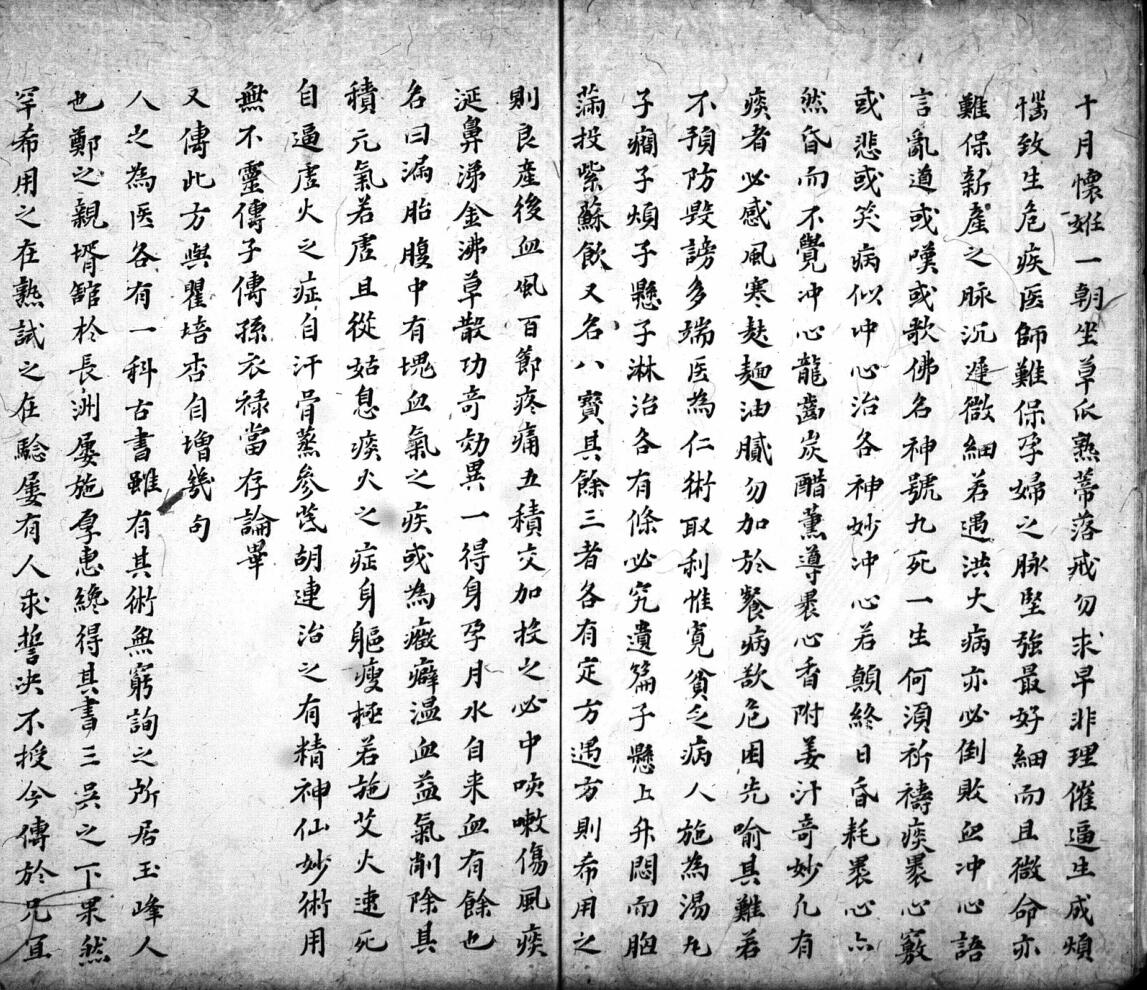 十月懷姙一朝坐草瓜熟蒂落戒勿求早非理催逼生成煩
惱致生危疾医師難保孕婦之脉堅強最好細而且微命亦
難保新產之脉沉遲微細若遇洪大病亦必倒敗血冲心語
言亂道或嘆或歌佛名神號九死一生何須祈禱痰裹心竅
或悲或笑病似冲心治各神妙冲心若顛終日昏耗裹心亦
然昏而不覺冲心龍齒炭醋薰導裹心香附姜汁奇妙凡有
痰者必感風寒麸麺油膩勿加於餐病欲危困先喻其難若
不預防毀謗多端医為仁術取利惟寬貧乏病人施為湯丸
子癇子煩子懸子淋治各有條必究遺篇子懸上升悶而胎
滿投紫蘇飲又名八寶其餘三者各有定方遇方則希用之
則良產後血風百節疼痛五積交加投之必中咳嗽傷風痰
涎鼻涕金沸草散功奇効異一得身孕月水自来血有餘也
名曰漏胎腹中有塊血氣之疾或為癥癖溫血益氣削除其
積元氣若虛且從姑息痰火之症身軀瘦極若施艾火速死
自逼虛火之症自汗骨蒸參芪胡連治之有精神仙妙術用
無不靈傳子傳孫衣祿當存論畢
又傳此方與瞿培杏自增幾句
人之為医各有一科古書雖有其術無窮詢之所居玉峰人
也鄭之親壻舘於長洲屡施厚惠纔得其書三吳之下果然
罕希用之在熟試之在騐屡有人求誓决不授今傳於兄宜